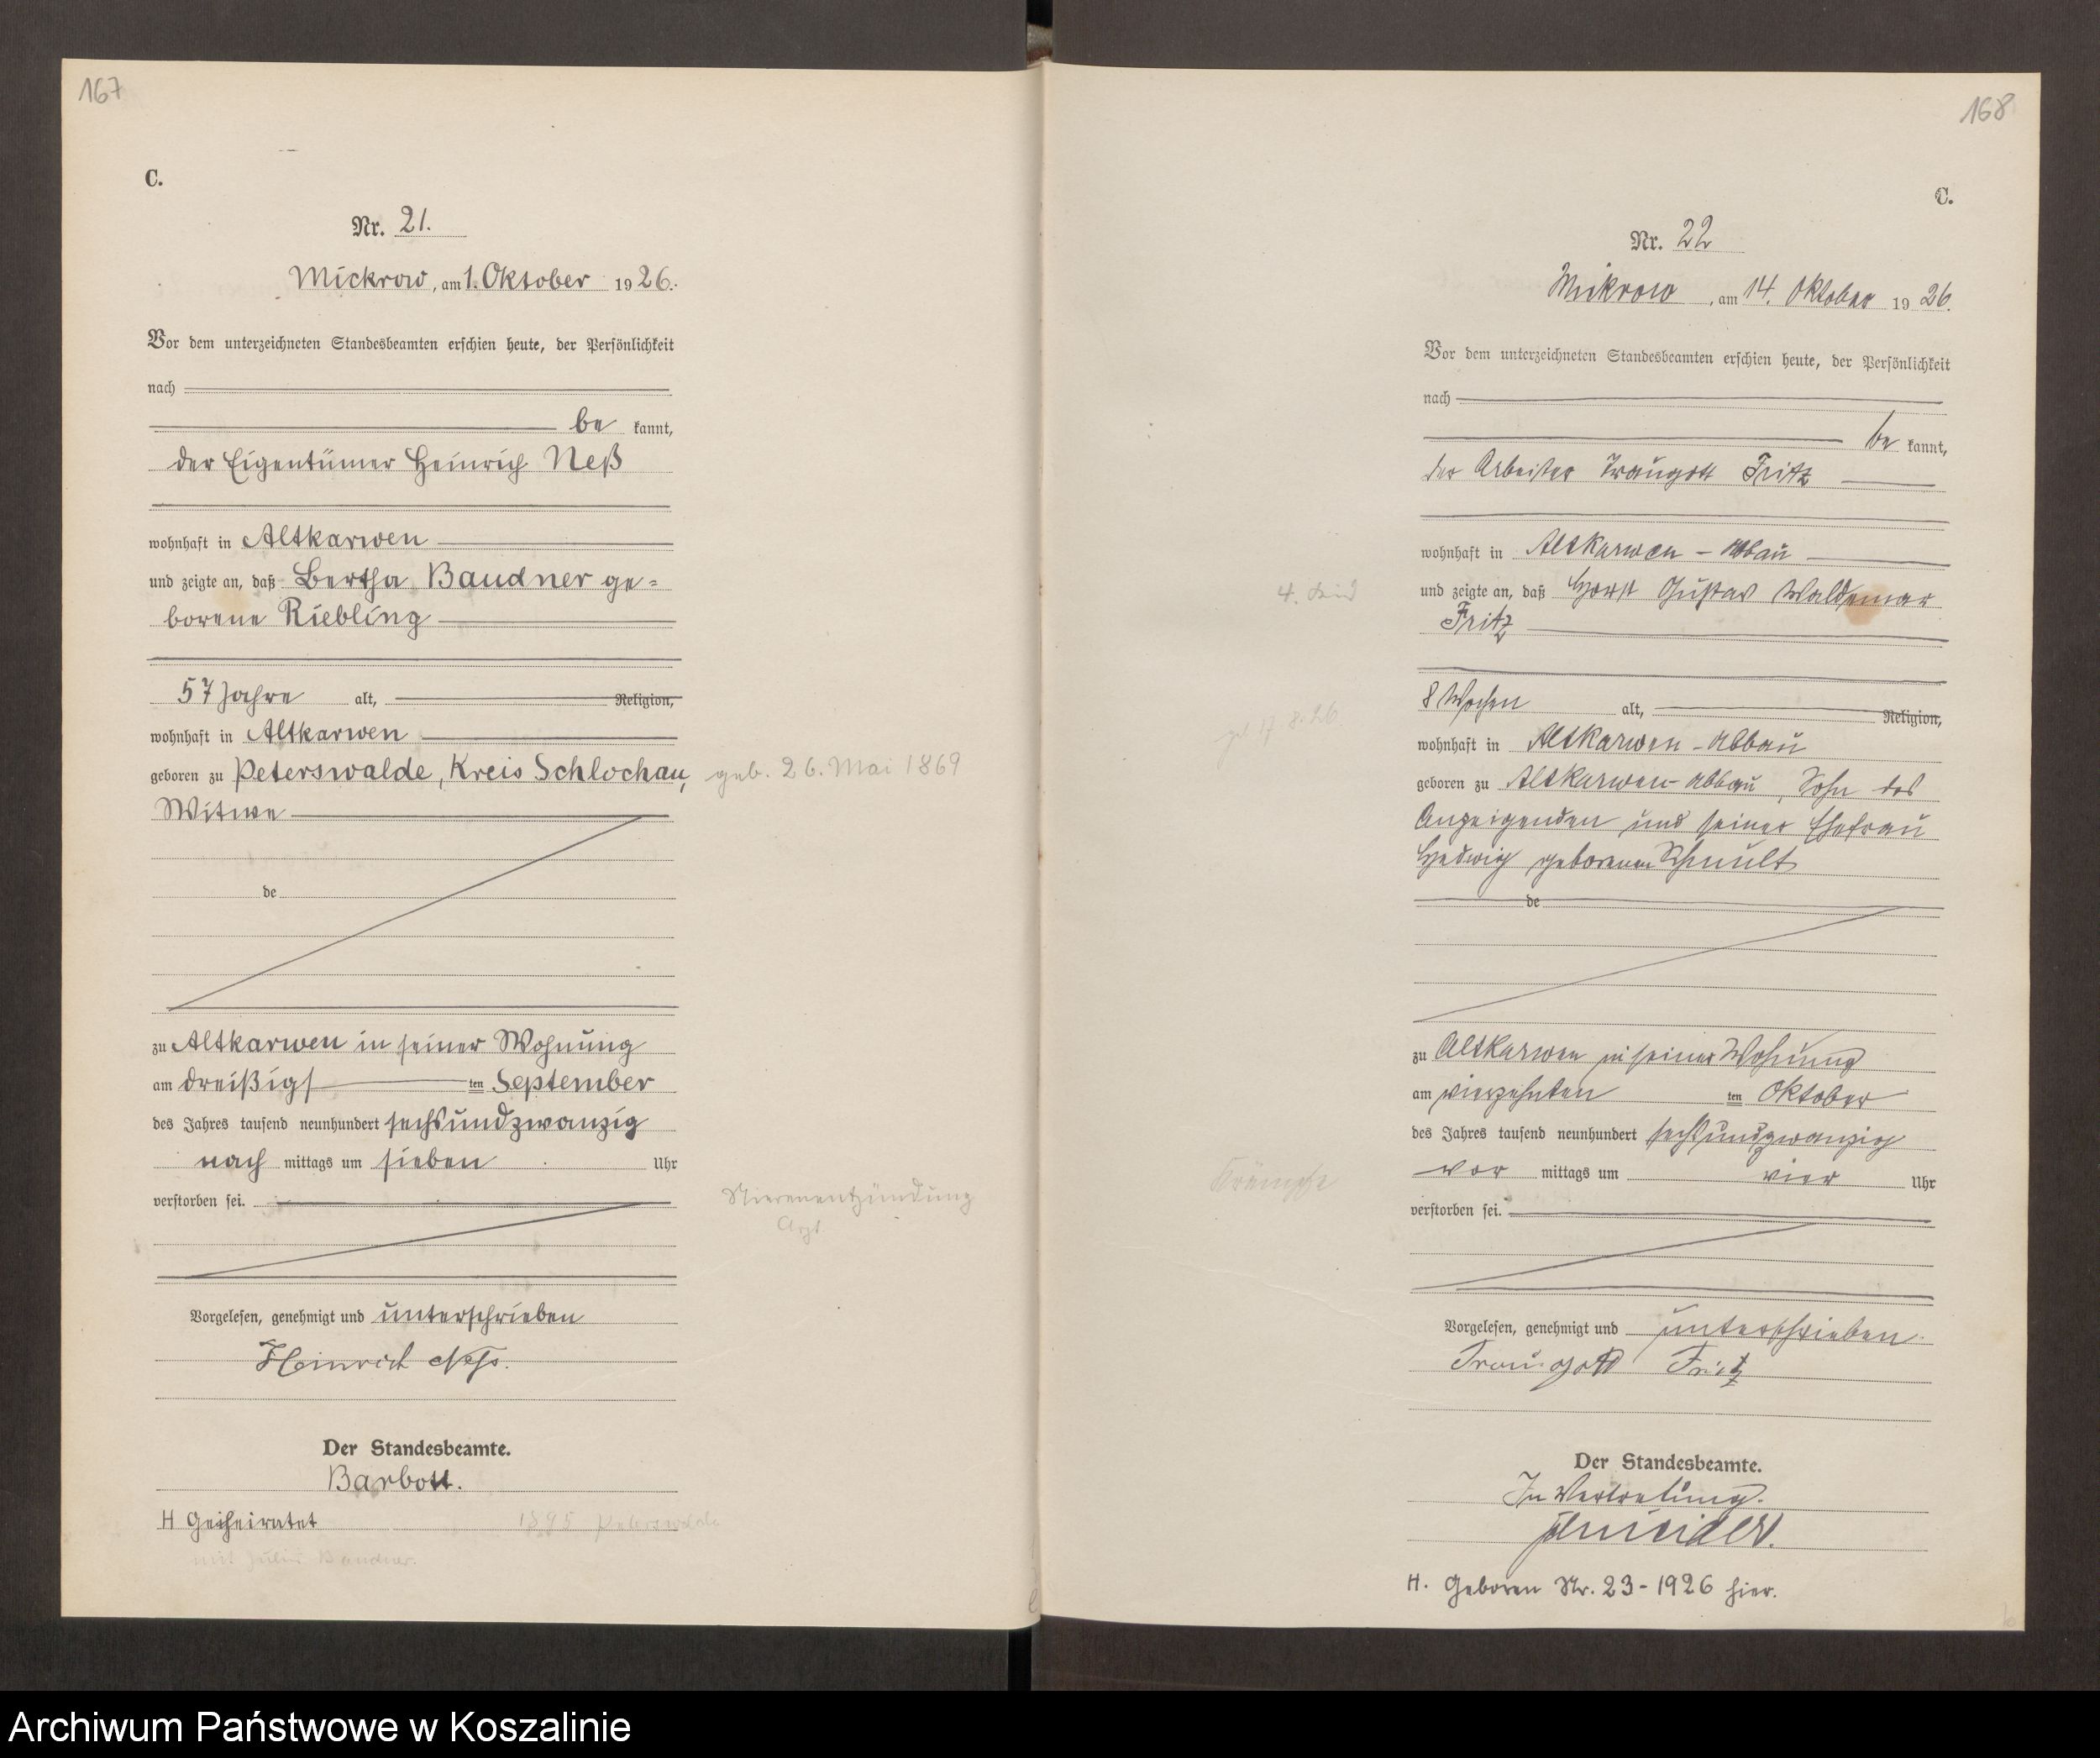 167
C.
Nr. 21.
Mickrow, am 1. Oktober 1926.
Vor dem unterzeichneten Standesbeamten erschien heute, der Persönlichkeit
nach
be kannt,
der Eigentümer Heinrich Neß
wohnhaft in Altkarwen
und zeigte an, daß Bertha Baudner ge=
borene Riebling
57 Jahre alt, Religion,
wohnhaft in Altkarwen
geboren zu Peterswalde, Kreis Schlochau, geb. 26. Mai 1869
Witwe
de
zu Altkarwen in seiner Wohnung
am dreißigs ten September
des Jahres tausend neunhundert sechsundzwanzig
nach mittags um sieben Uhr
verstorben sei. Nierenentzündung
Arzt
Vorgelesen, genehmigt und unterschrieben
Heinrich Neß.
Der Standesbeamte.
Barbott.
H Geiheiratet 1895 Peterswalde
mit Julius Baudner.
168
C.
Nr. 22
Mikrow, am 14. Oktober 1926.
Vor dem unterzeichneten Standesbeamten erschien heute, der Persönlichkeit
nach
be kannt,
der Arbeiter Traugott Fritz
wohnhaft in Altkarwen - Abbau
4. Kind und zeigte an, daß Horst Gustav Waldemar
Fritz
8 Wochen alt, Religion,
17. 8. 26 wohnhaft in Altkarwen - Abbau
geboren zu Altkarwen - Abbau, Sohn des
Anzeigenden und seiner Ehefrau
Hedwig geborenen Schmilt
de
zu Altkarwen in seiner Wohnung
am vierzehnten ten Oktober
des Jahres tausend neunhundert sechsundzwanzig
Krämpfe vor mittags um vier Uhr
verstorben sei.
Vorgelesen, genehmigt und unterschrieben.
Traugott Fritz
Der Standesbeamte.
In Vertretung.
Schneider.
H. Geboren Nr. 23 - 1926 hier.
Archiwum Państwowe w Koszalinie